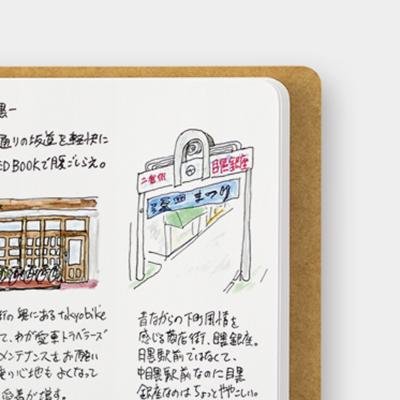 黒一
通りの坂道を軽快に
ED BOOKで腹ごしらえ。
二番街
目黒銀座
まつり
街の奥にあるtokyobike
て、わが愛車トラベラーズ
メンテナンスもお願い
乗り心地もよくなって
愛着が増す。
昔ながらの下町風情を
感じる商店街、目黒銀座。
目黒駅前ではなくて、
中目黒駅前なのに目黒
銀座なのはちょっとややこしい。